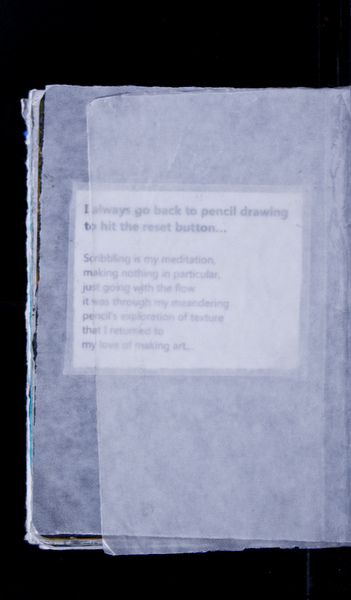 I always go back to pencil drawing
to hit the reset button...
Scribbling is my meditation,
making nothing in particular,
just going with the flow
it was through my meandering
pencil's exploration of texture
that I returned to
my love of making art...